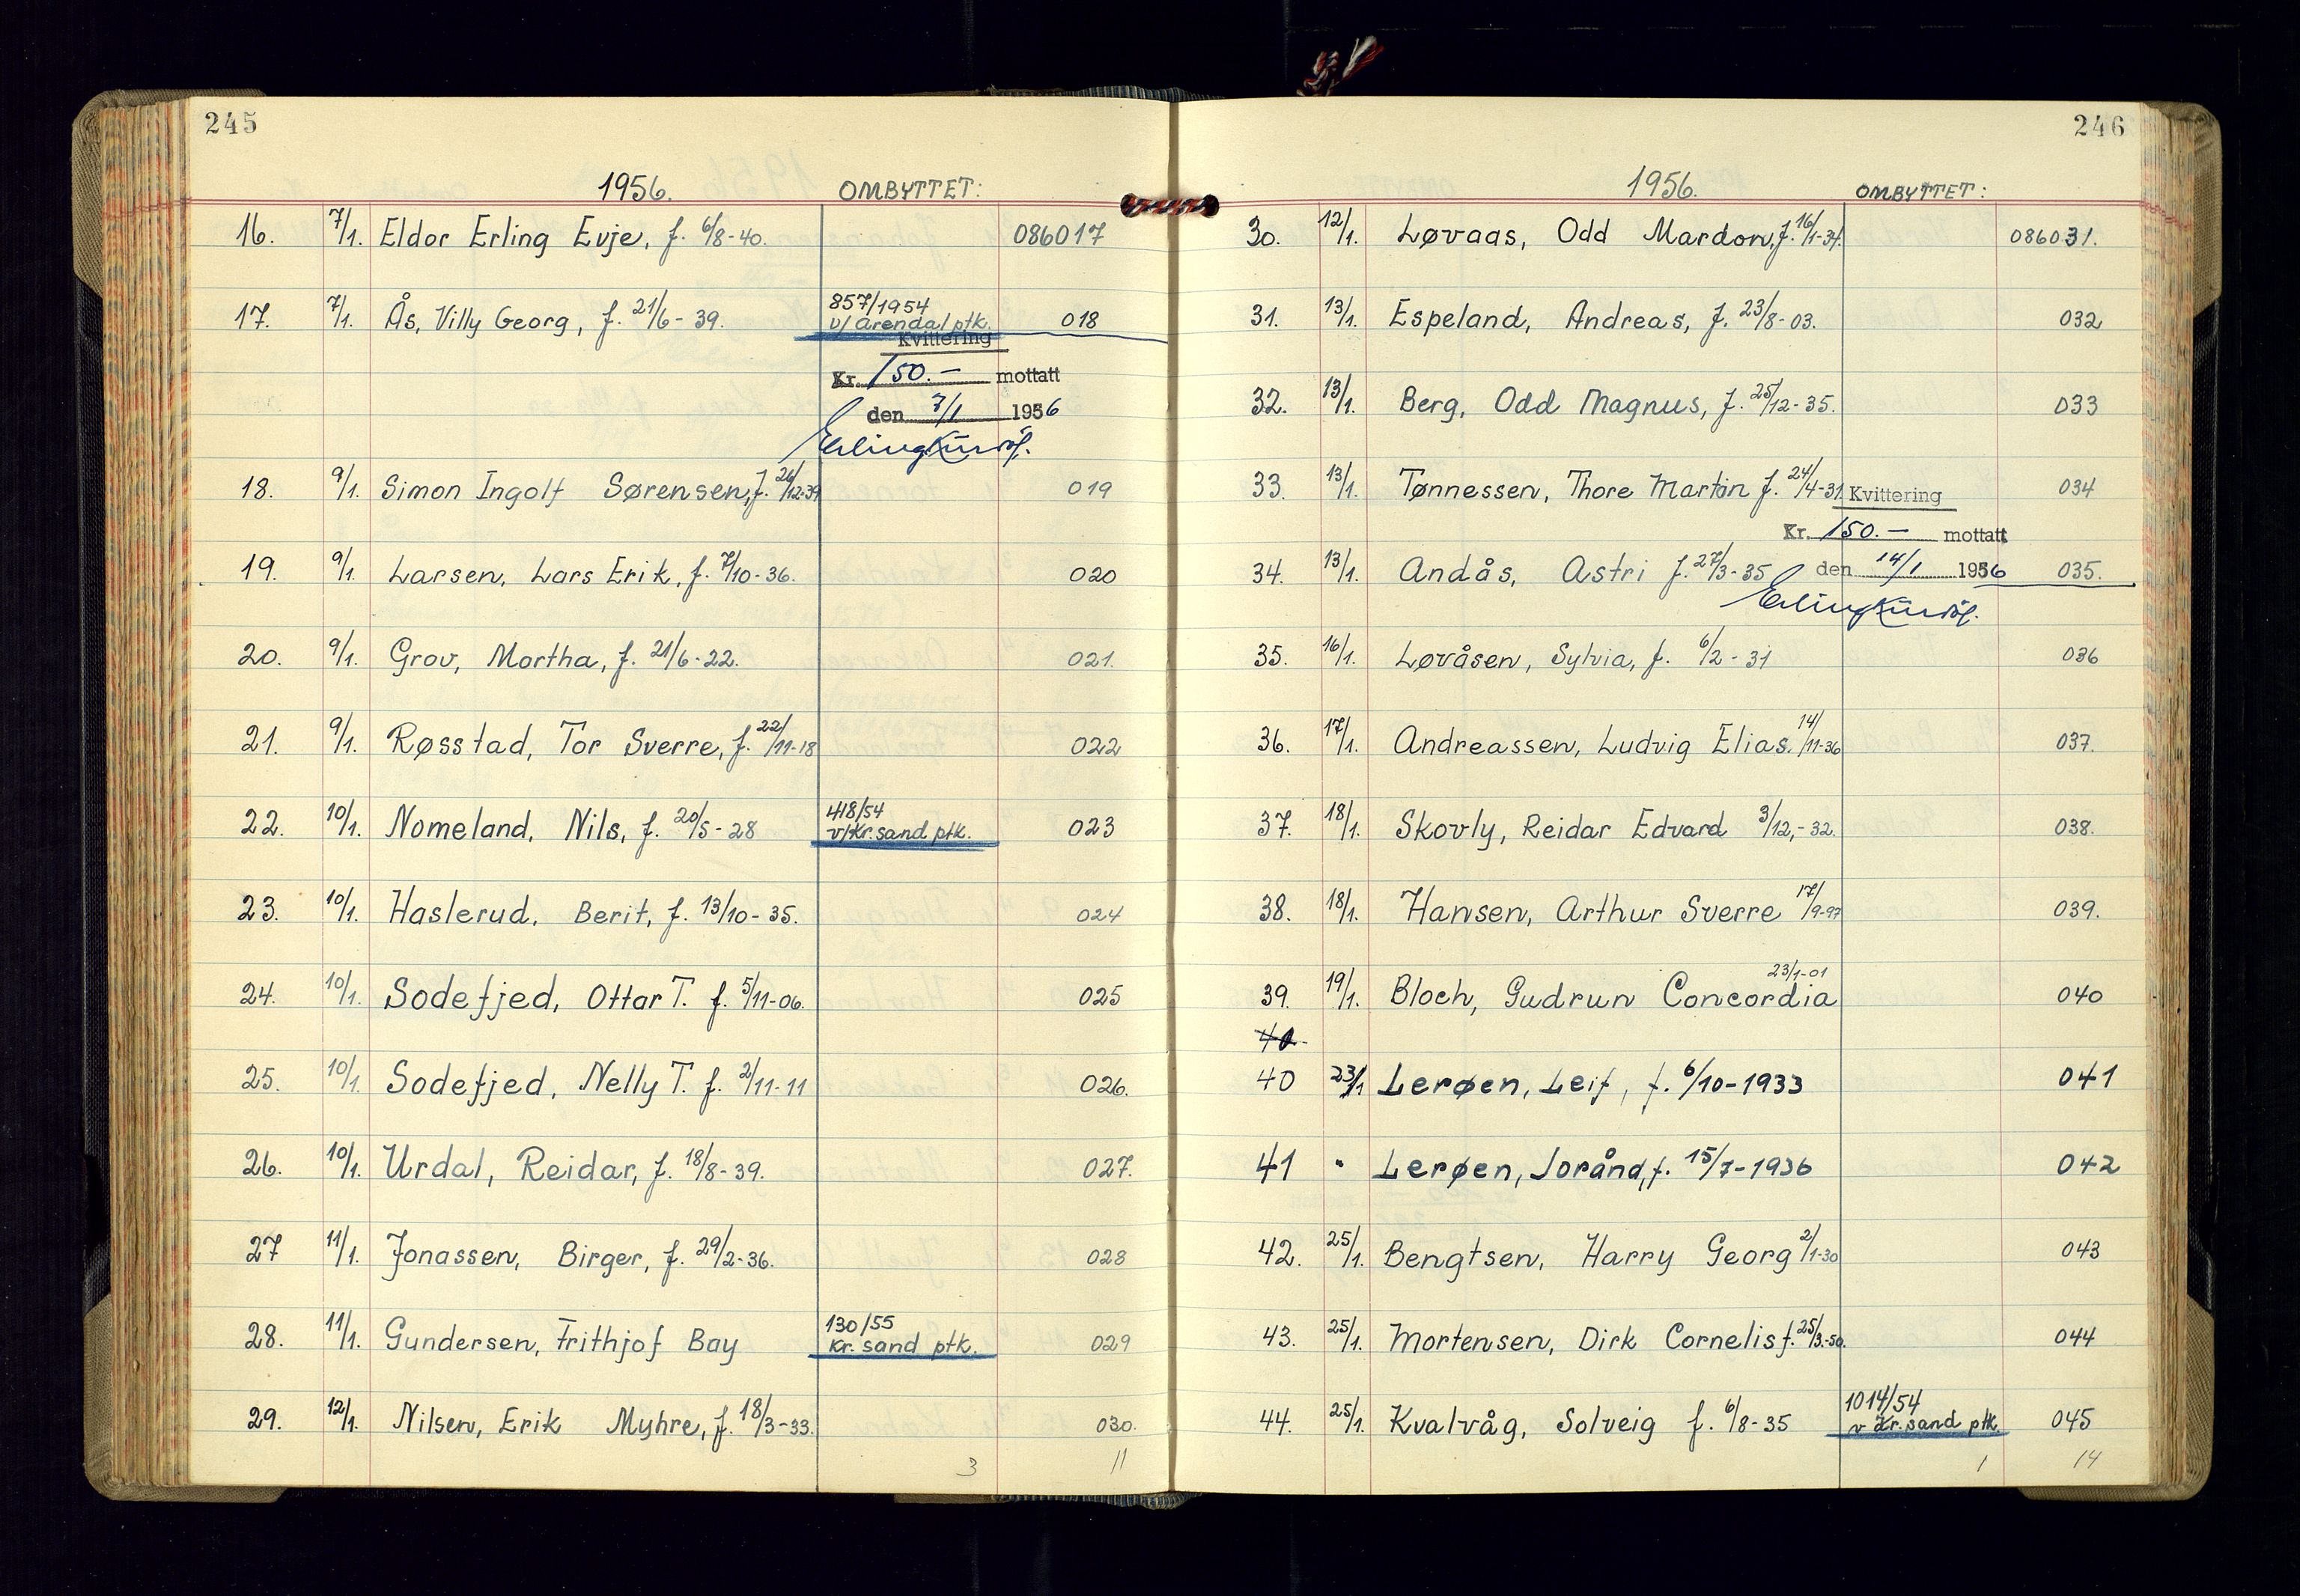 245
1956. OMBYTTET:
16. 7/1. Eldor Erling Evje, f. 6/8-40. 086017
17. 7/1. Ås, Villy Georg, f. 21/6-39. 857/1954 v/ Arendal ptk. 018
Kvittering
Kr. 150.- mottatt
den 7/1 1956
18. 9/1. Simon Ingolf Sørensen, f. 26/12-39 019
19. 9/1. Larsen, Lars Erik, f. 7/10-36. 020
20. 9/1. Grov, Martha, f. 21/6-22. 021.
21. 9/1. Røsstad, Tor Sverre, f. 22/11-18 022
22. 10/1. Nomeland, Nils, f. 20/5-28 418/54 v/Kr.sand ptk. 023
23. 10/1. Haslerud, Berit, f. 13/10-35. 024
24. 10/1. Sodefjed, Ottar T. f. 5/11-06. 025
25. 10/1. Sodefjed, Nelly T. f. 2/11-11 026.
26. 10/1. Urdal, Reidar, f. 18/8-39. 027.
27 11/1. Jonassen, Birger, f. 29/2-36. 028
28. 11/1. Gundersen, Frithjof Bay 130/55 Kr.sand ptk. 029
29. 12/1. Nilsen, Erik Myhre, f. 18/3-33. 030.
3 11
246
1956. OMBYTTET:
30. 12/1. Løvaas, Odd Mardon, f. 16/1-34. 086031.
31. 13/1. Espeland, Andreas, f. 23/8-03. 032
32. 13/1. Berg, Odd Magnus, f. 25/12-35. 033
33. 13/1. Tønnessen, Thore Martin f. 24/4-31 034
Kvittering
Kr. 150.- mottatt
34. 13/1. Andås, Astri f. 27/3-35 den 14/1 1956 035.
35. 16/1. Løvåsen, Sylvia, f. 6/2-31 036
36. 17/1. Andreassen, Ludvig Elias. 14/11-36 037.
37. 18/1. Skovly, Reidar Edvard 3/12,-32. 038.
38. 18/1. Hansen, Arthur Sverre 17/9-97 039.
39. 19/1. Bloch, Gudrun Concordia 23/1-01 040
40.
40 23/1 Lerøen, Leif, f. 6/10-1933 041
41 " Lerøen, Jorånd, f. 15/7-1936 042
42. 25/1. Bengtsen, Harry Georg 2/1-30 043
43. 25/1. Mortensen, Dirk Cornelis f. 25/3-50. 044
44. 25/1. Kvalvåg, Solveig f. 6/8-35 1014/54 v Kr.sand ptk. 045
1 14